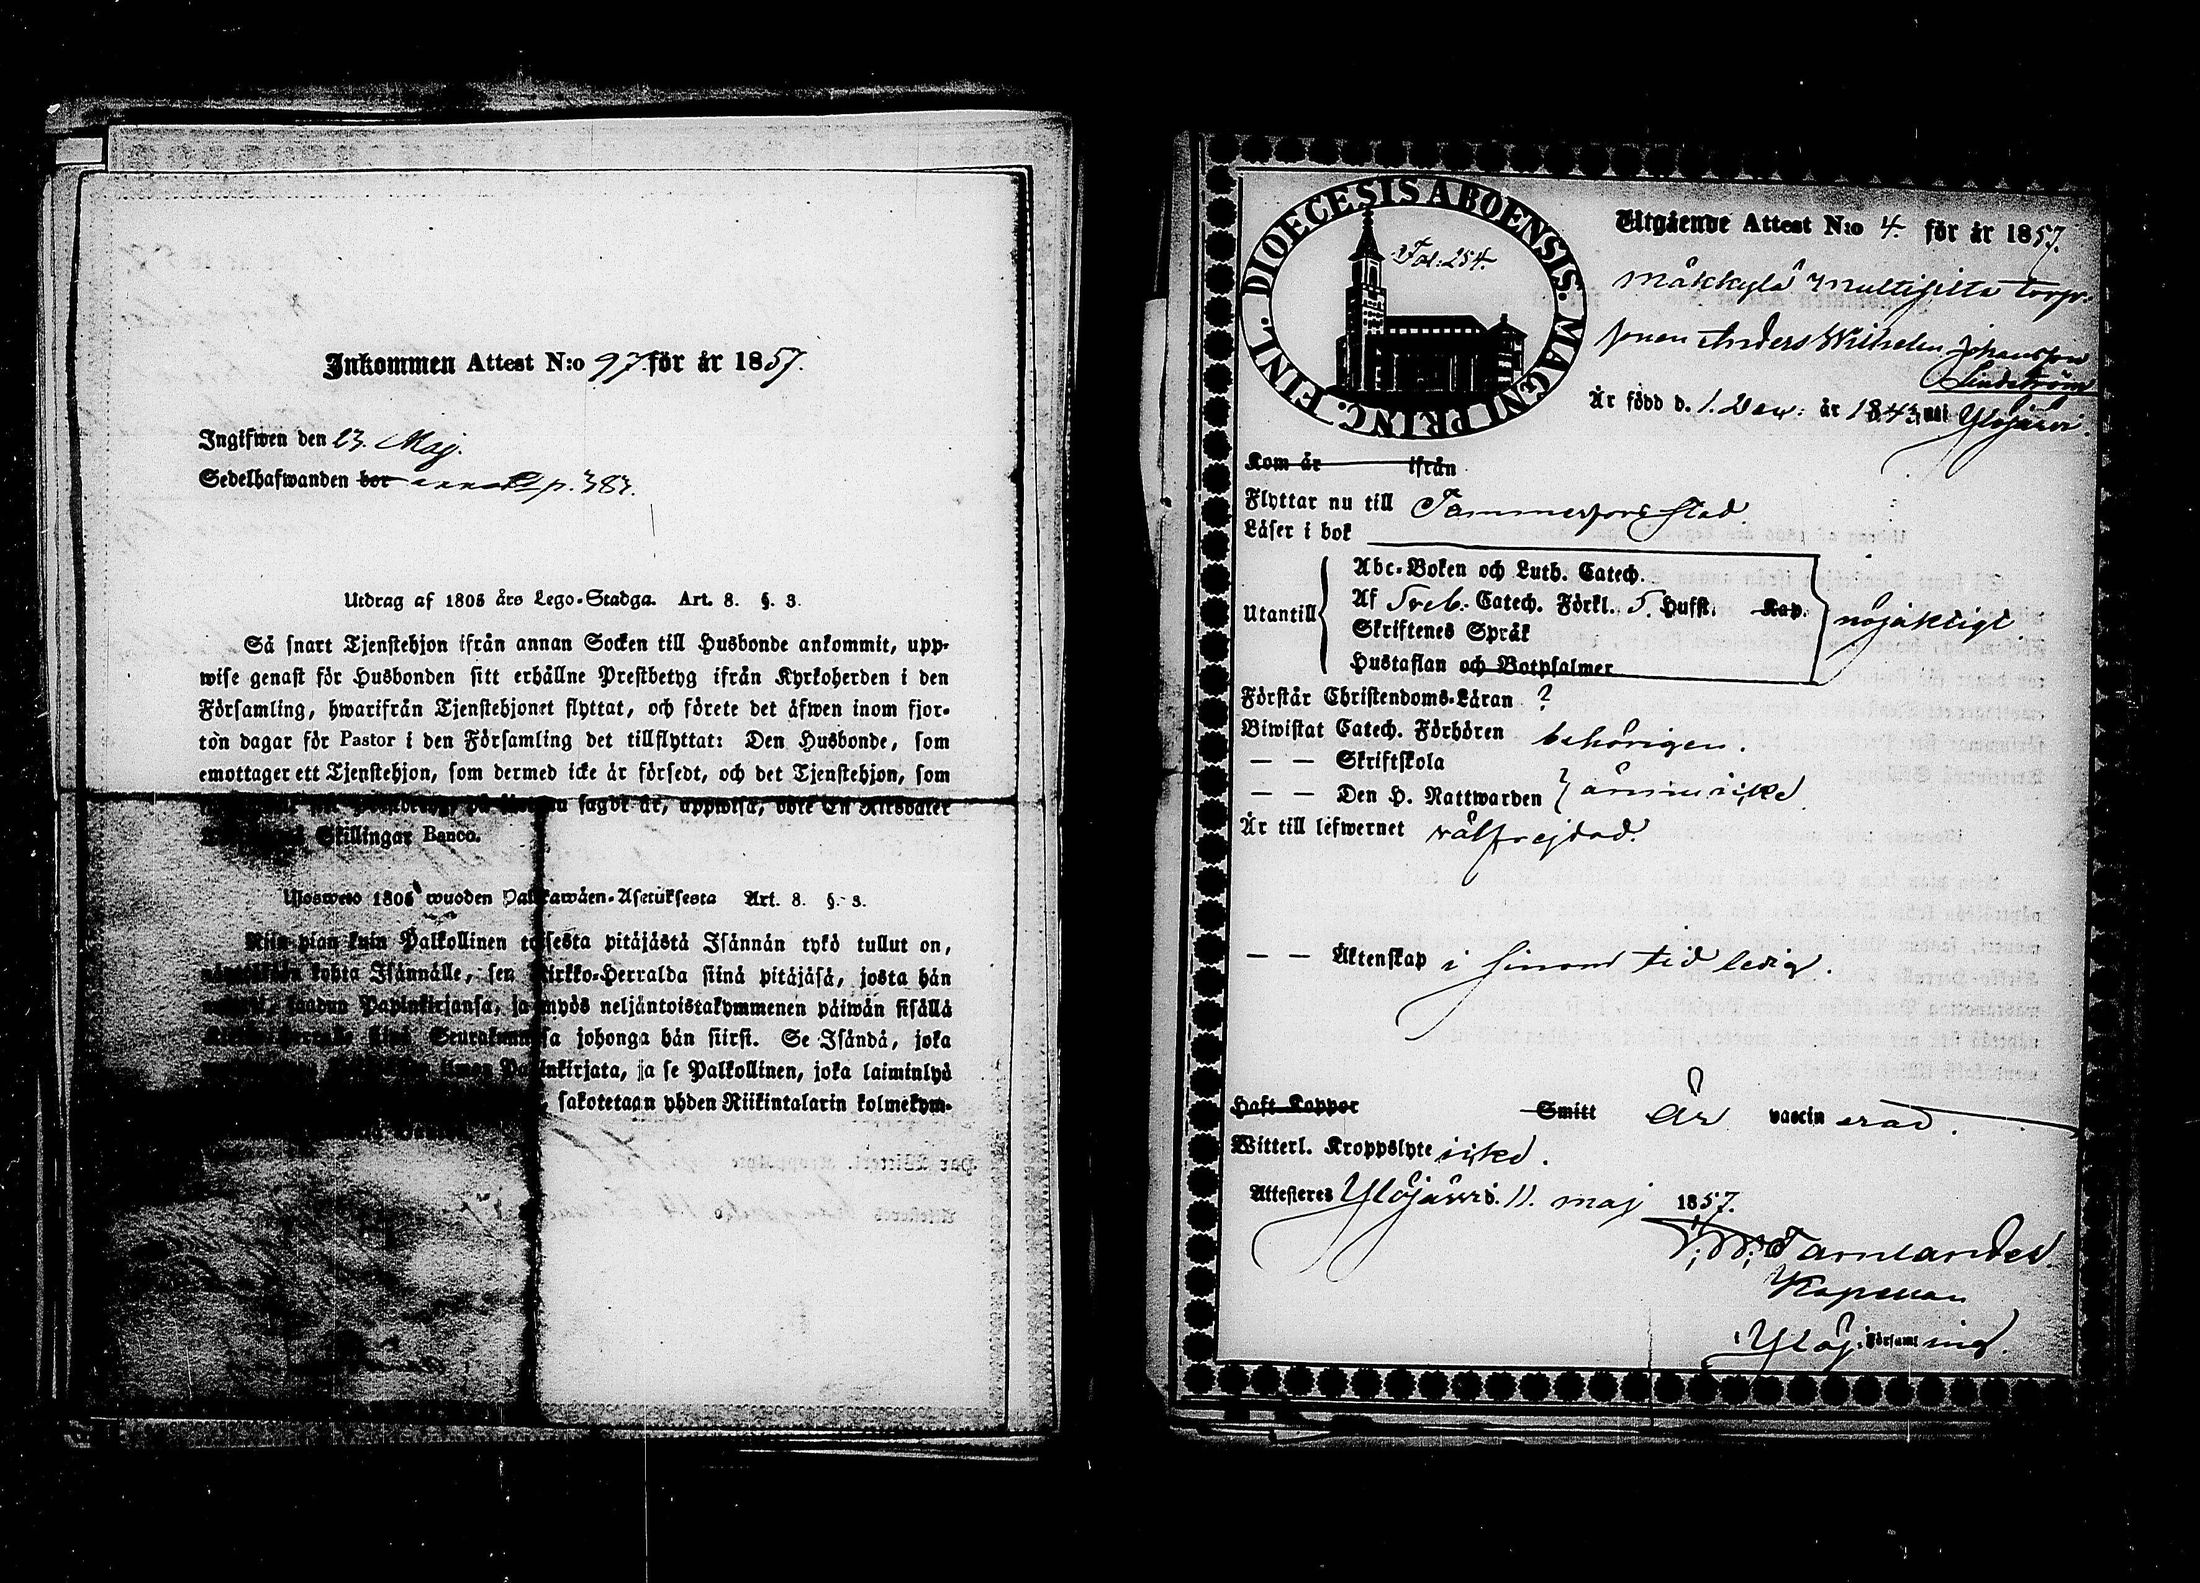 Inkommen Attest N:o 97. för år 1857.
Ingifwen den 23. Maj.
Sedelhafwanden bor annot. p. 383.
Utdrag af 1805 års Lego-Stadga. Art. 8. §. 3.
Så snart Tjenstehjon ifrån annan Socken till Husbonde ankommit, upp-
wise genast för Husbonden sitt erhållne Prestbetyg ifrån Kyrkoherden i den
Församling, hwarifrån Tjenstehjonet flyttat, och förete det äfwen inom fjor-
ton dagar för Pastor i den Församling det tillflyttat: Den Husbonde, som
emottager ett Tjenstehjon, som dermed icke är försedt, och det Tjenstehjon, som
sagdt är, uppwisa, böte En Riksdaler
Skillingar Banco.
Ulosweto 1805 wuoden Palkawäen-Asetuksesta Art. 8. §. 3.
Niin pian kuin Palkollinen toisesta pitäjästä Isännän tykö tullut on,
kohta Isännälle, sen Kirkko-Herralda siinä pitäjäsä, josta hän
saadun Papinkirjansa, ja myös neljäntoistakymmenen päiwän sisällä
Seurakunnasa johonga hän siirsi. Se Isändä, joka
ilman Papinkirjata, ja se Palkollinen, joka laiminlyö
sakotetaan yhden Riikintalarin kolmekym-
DIOECESIS ABOENSIS. MAGNI PRINC. FINL.
Fol: 254.
Utgående Attest N:o 4. för år 1857.
Mäkkylä Multisilta torp-
sonen Anders Wilhelm Johansson
Lindström
Är född d. 1. Dec: år 1843 uti Ylöjärvi.
Kom år ifrån
Flyttar nu till Tammerfors stad
Läser i bok
Abc-Boken och Luth. Catech.
Utantill Af Sveb. Catech. Förkl. 5. Hufst. Kap. nöjaktigt
Skriftenes Språk
Hustaflan och Botpsalmer
Förstår Christendoms-Läran ?
Biwistat Catech. Förhören behörigen.
— — Skriftskola
— — Den H. Nattwarden } ännu icke
Är till lefwernet välfrejdad.
— — Äktenskap i sinom tid ledig.
Haft Koppor Smitt Är vaccinerad.
Witterl. Kroppslyte icke.
Attesteras Ylöjärvi d. 11. maj 1857.
Kapellan
i Ylöj. Församling.